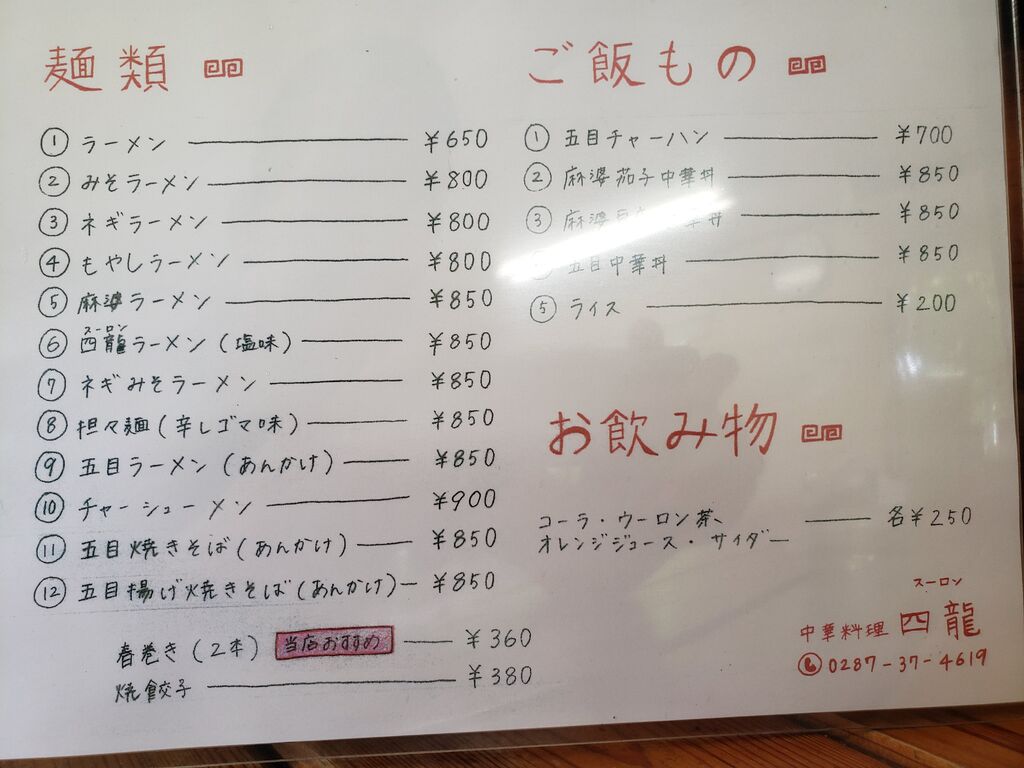 麺類
① ラーメン ¥650
② みそラーメン ¥800
③ ネギラーメン ¥800
④ もやしラーメン ¥800
⑤ 麻婆ラーメン ¥850
スーロン
⑥ 四龍ラーメン(塩味) ¥850
⑦ ネギみそラーメン ¥850
⑧ 担々麺(辛しゴマ味) ¥850
⑨ 五目ラーメン(あんかけ) ¥850
⑩ チャーシューメン ¥900
⑪ 五目焼きそば(あんかけ) ¥850
⑫ 五目揚げ焼きそば(あんかけ) ¥850
春巻き(2本) 当店おすすめ ¥360
焼餃子 ¥380
ご飯もの
① 五目チャーハン ¥700
② 麻婆茄子中華丼 ¥850
③ 麻婆 華丼 ¥850
五目中華丼 ¥850
⑤ ライス ¥200
お飲み物
コーラ・ウーロン茶、
オレンジジュース・サイダー 各¥250
スーロン
中華料理 四龍
0287-37-4619